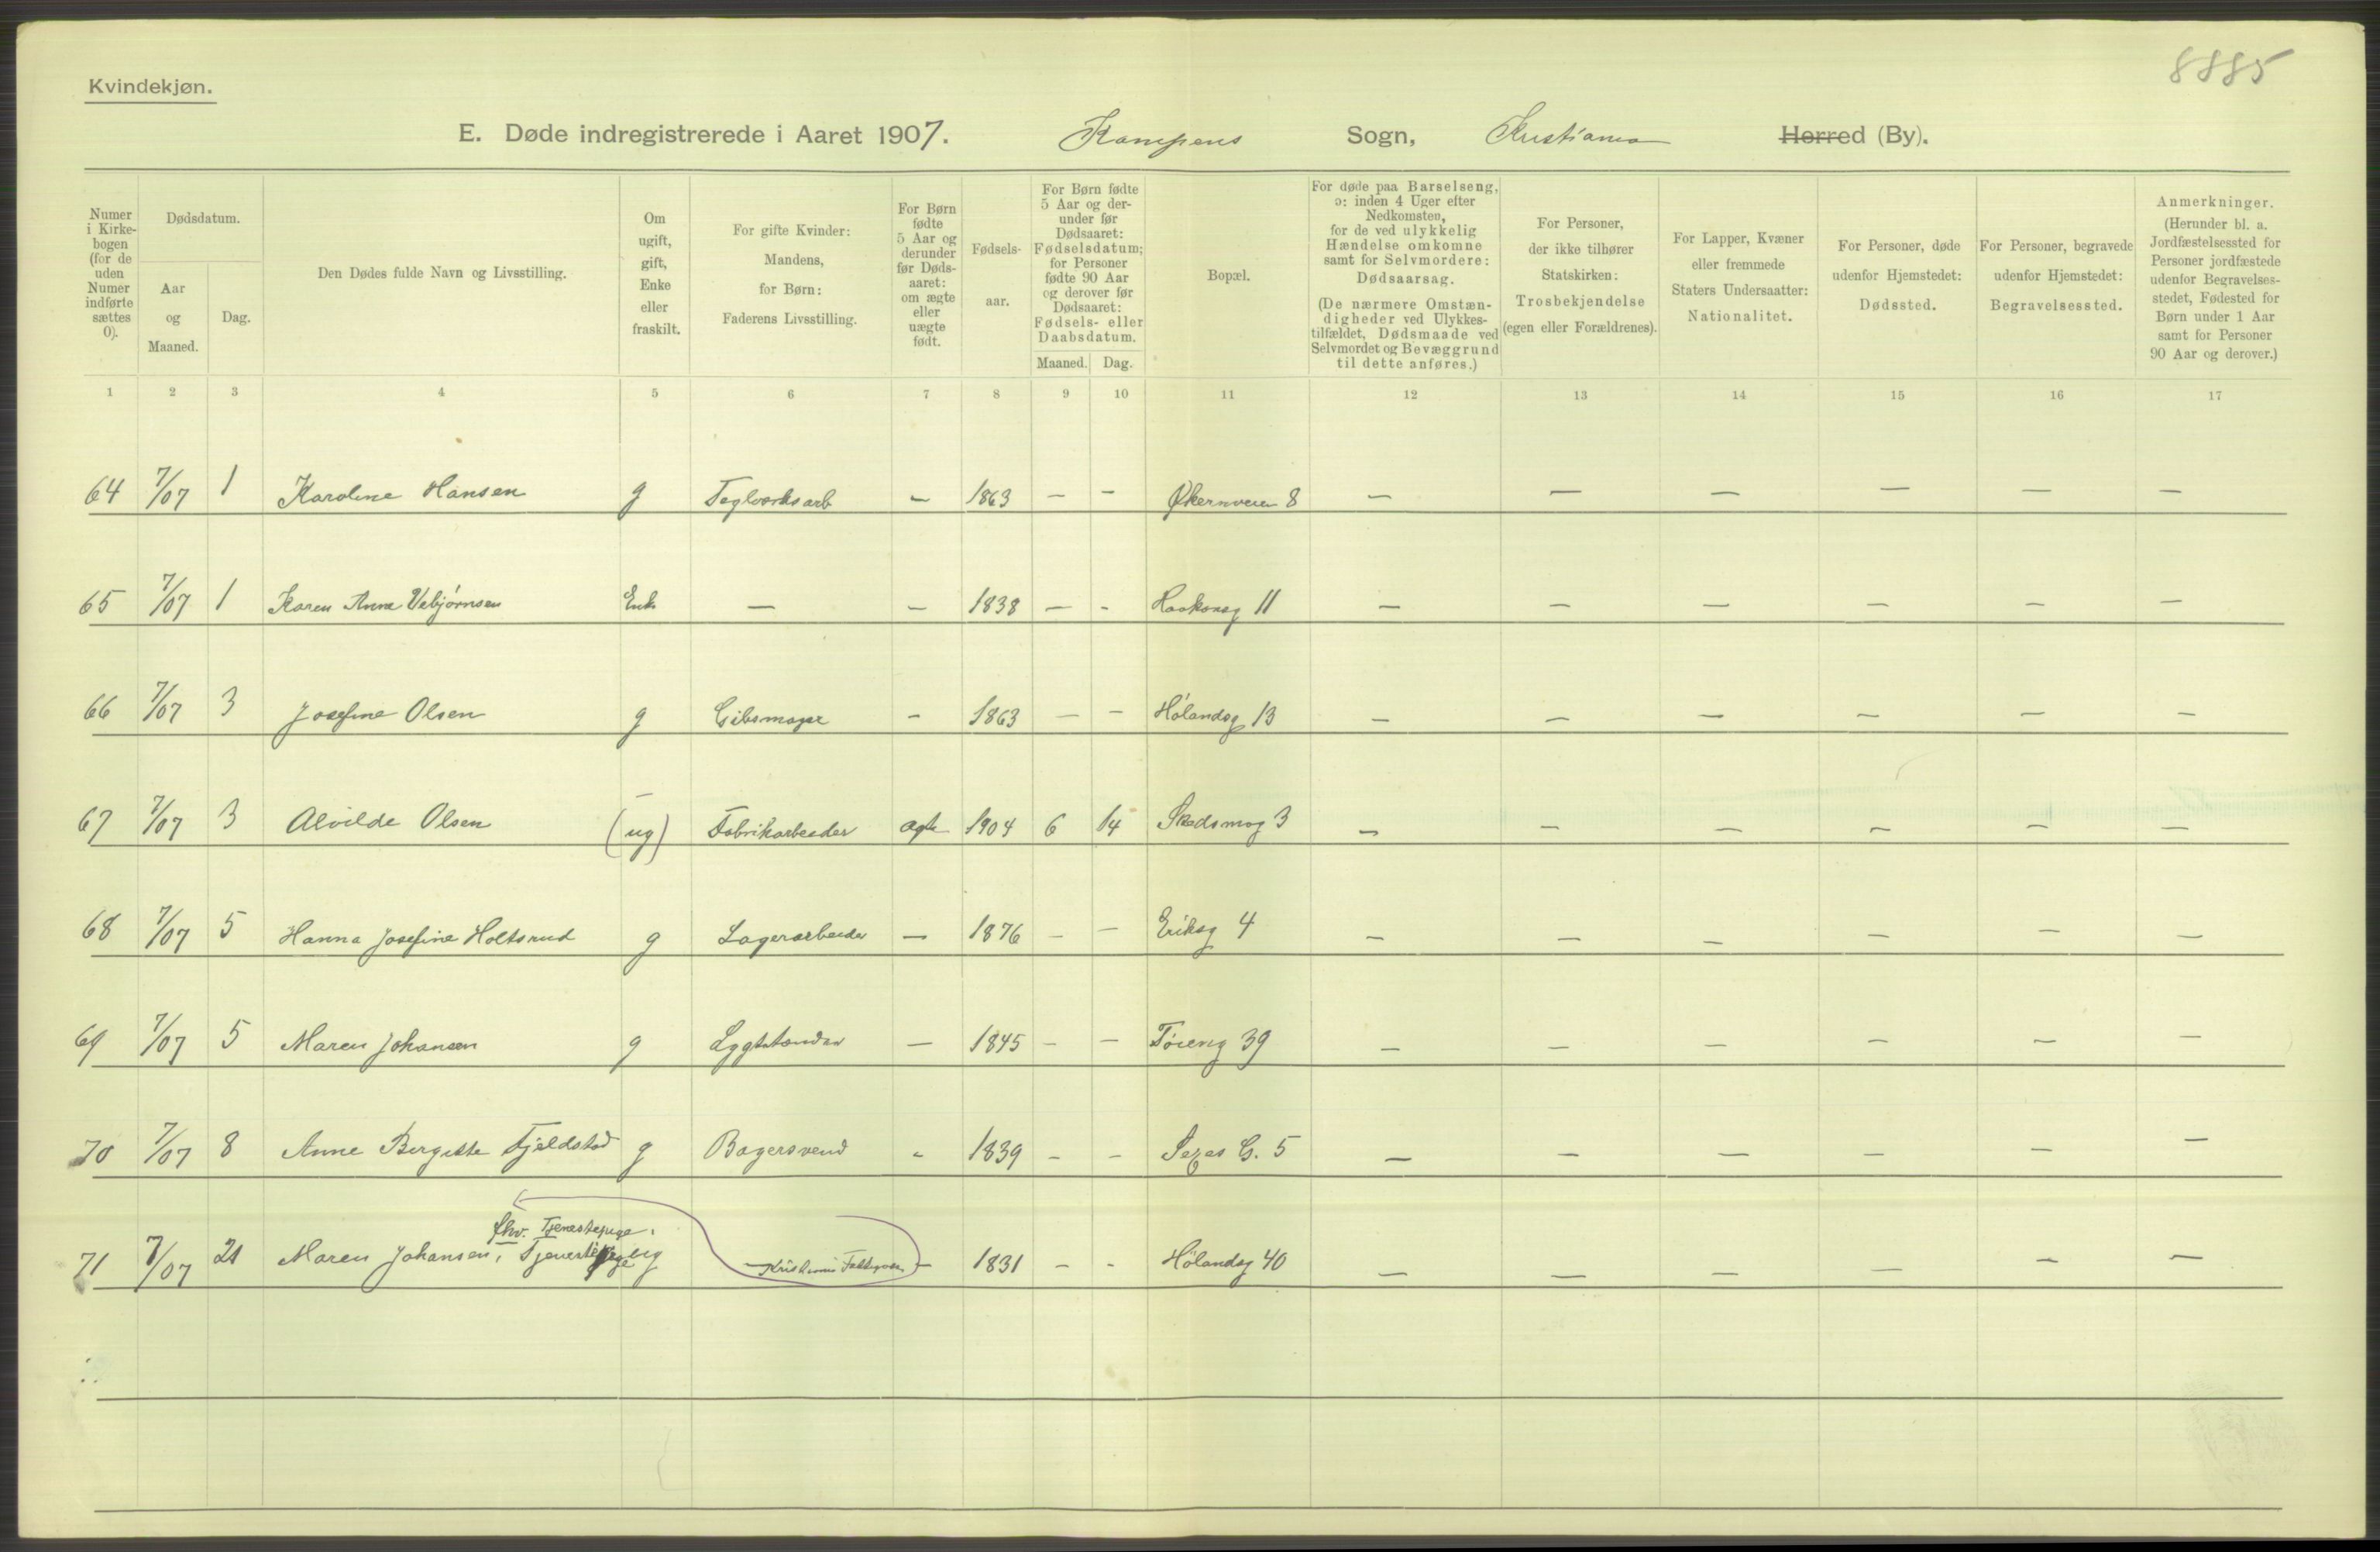 8885
Kvindekjøn.
E. Døde indregistrerede i Aaret 1907. Kampens Sogn, Kristiania Herred (By).
Numer i Kirkebogen (for de uden Numer indførte sættes 0).
Dødsdatum.
Aar og Maaned.
Dag.
Den Dødes fulde Navn og Livsstilling.
Om ugift, gift, Enke eller fraskilt.
For gifte Kvinder: Mandens, for Børn: Faderens Livsstilling.
For Børn fødte 5 Aar og derunder før Dødsaaret: om ægte eller uægte født.
Fødselsaar.
For Børn fødte 5 Aar og derunder før Dødsaaret: Fødselsdatum; for Personer fødte 90 Aar og derover før Dødsaaret: Fødsels- eller Daabsdatum.
Maaned. Dag.
Bopæl.
For døde paa Barselseng, ɔ: inden 4 Uger efter Nedkomsten, for de ved ulykkelig Hændelse omkomne samt for Selvmordere: Dødsaarsag.
(De nærmere Omstændigheder ved Ulykkestilfældet, Dødsmaade ved Selvmordet og Bevæggrund til dette anføres.)
For Personer, der ikke tilhører Statskirken: Trosbekjendelse (egen eller Forældrenes).
For Lapper, Kvæner eller fremmede Staters Undersaatter: Nationalitet.
For Personer, døde udenfor Hjemstedet: Dødssted.
For Personer, begravede udenfor Hjemstedet: Begravelsessted.
Anmerkninger.
(Herunder bl. a. Jordfæstelsessted for Personer jordfæstede udenfor Begravelsesstedet, Fødested for Børn under 1 Aar samt for Personer 90 Aar og derover.)
1 2 3 4 5 6 7 8 9 10 11 12 13 14 15 16 17
64 7/07 1 Karoline Hansen g Teglværksarb – 1863 – – Økernveien 8 – – – – – –
65 7/07 1 Karen Anna Vebjørnsen Enk – – 1838 – – Haakonsg 11 – – – – – –
66 7/07 3 Josefine Olsen g Gibsmager – 1863 – – Hølandsg 13 – – – – – –
67 7/07 3 Alvilde Olsen (ug) Fabrikarbeider ægte 1904 6 14 Skedsmog 3 – – – – – –
68 7/07 5 Hanna Josefine Holtsrud g Lagerarbeider – 1876 – – Eriksg 4 – – – – – –
69 7/07 5 Maren Johansen g Lygtetænder – 1845 – – Tøieng 39 – – – – – –
70 7/07 8 Anne Bergitte Fjeldstad g Bagersvend – 1839 – – G. 5 – – – – – –
fhv. Tjenestepige.
71 7/07 21 Maren Johansen, Tjenestepige ug – – 1831 – – Hølandsg 40 – – – – – –